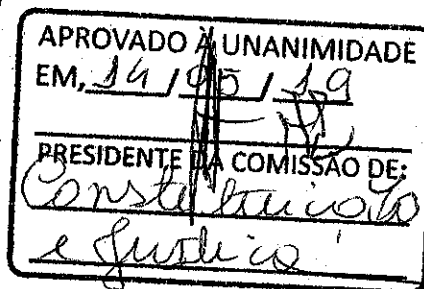 APROVADO À UNANIMIDADE
EM, 14 / 05 / 19
PRESIDENTE DA COMISSÃO DE:
Constituição
e Justiça